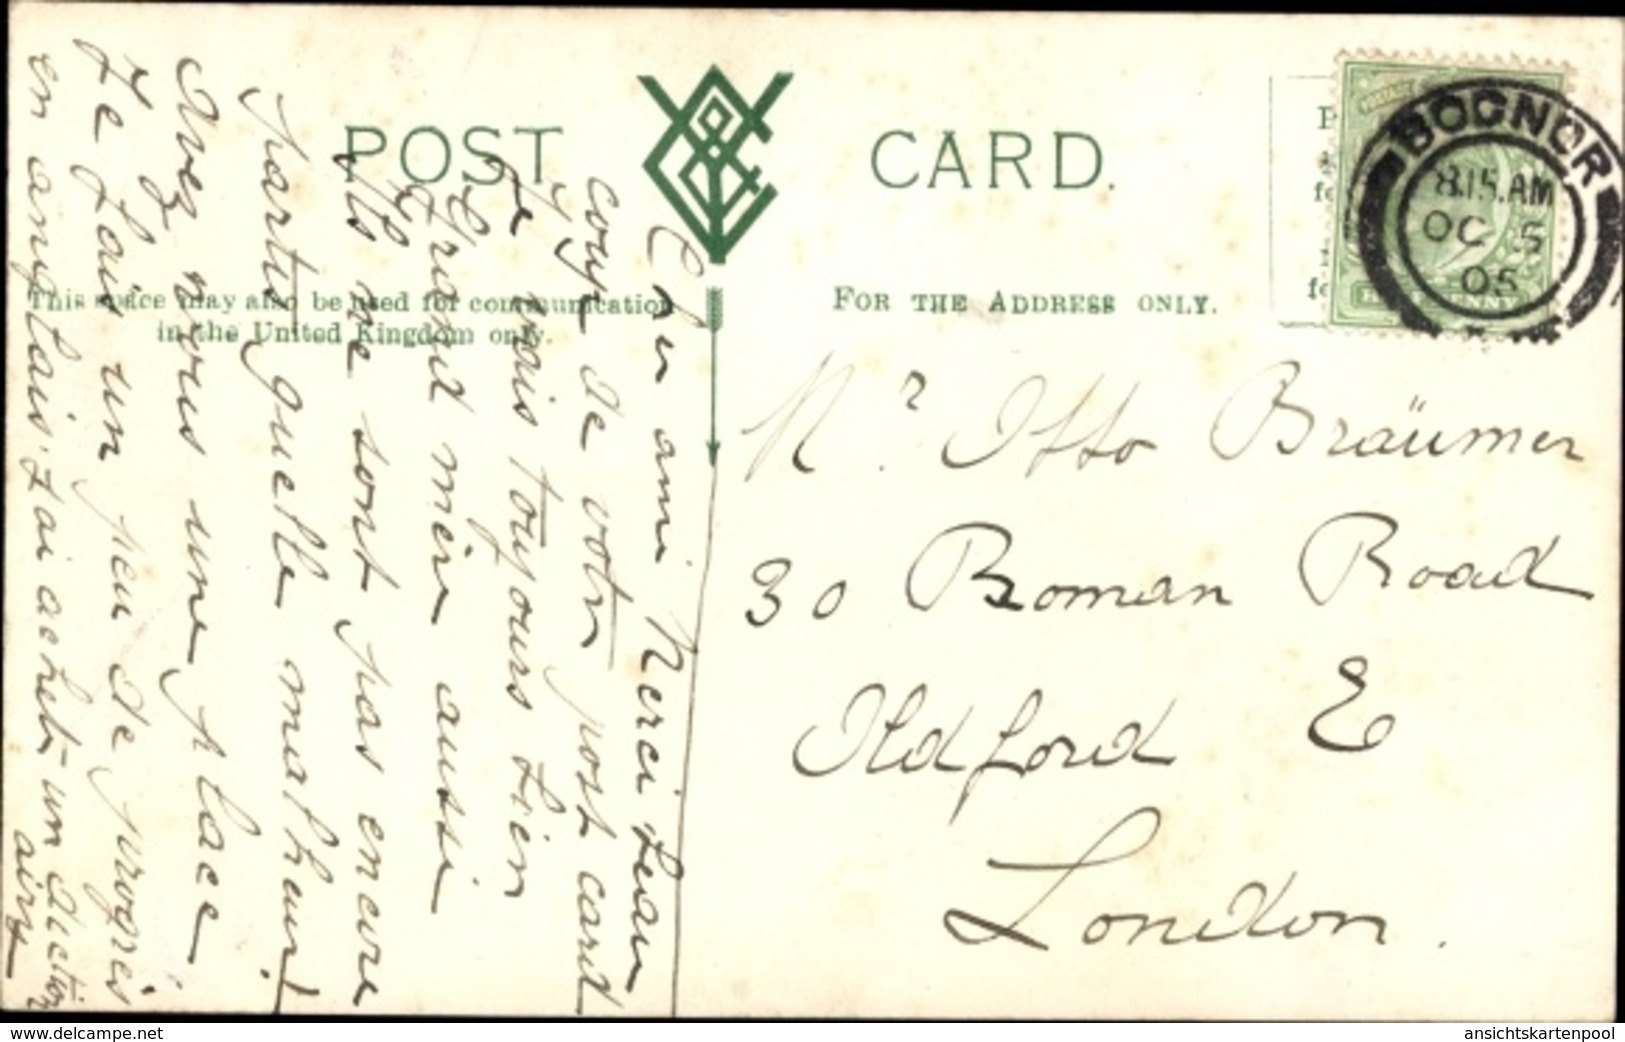 POST CARD.
This space may also be used for communication
in the United Kingdom only.
FOR THE ADDRESS ONLY.
BOGNOR
8.15.AM
OC 5
05
Mr. Otto Bräumer
30 Roman Road
Ildford E
London.
Cher ami Merci beau
coup de votre post card
Je vais toujours bien
Grand mère aussi
Ils ne sont pas encore
partis quelle malheur!
Avez vous une place
? Je fais un peu de progrès
en anglais. J'ai acheté un diction
aire
www.delcampe.net
ansichtskartenpool